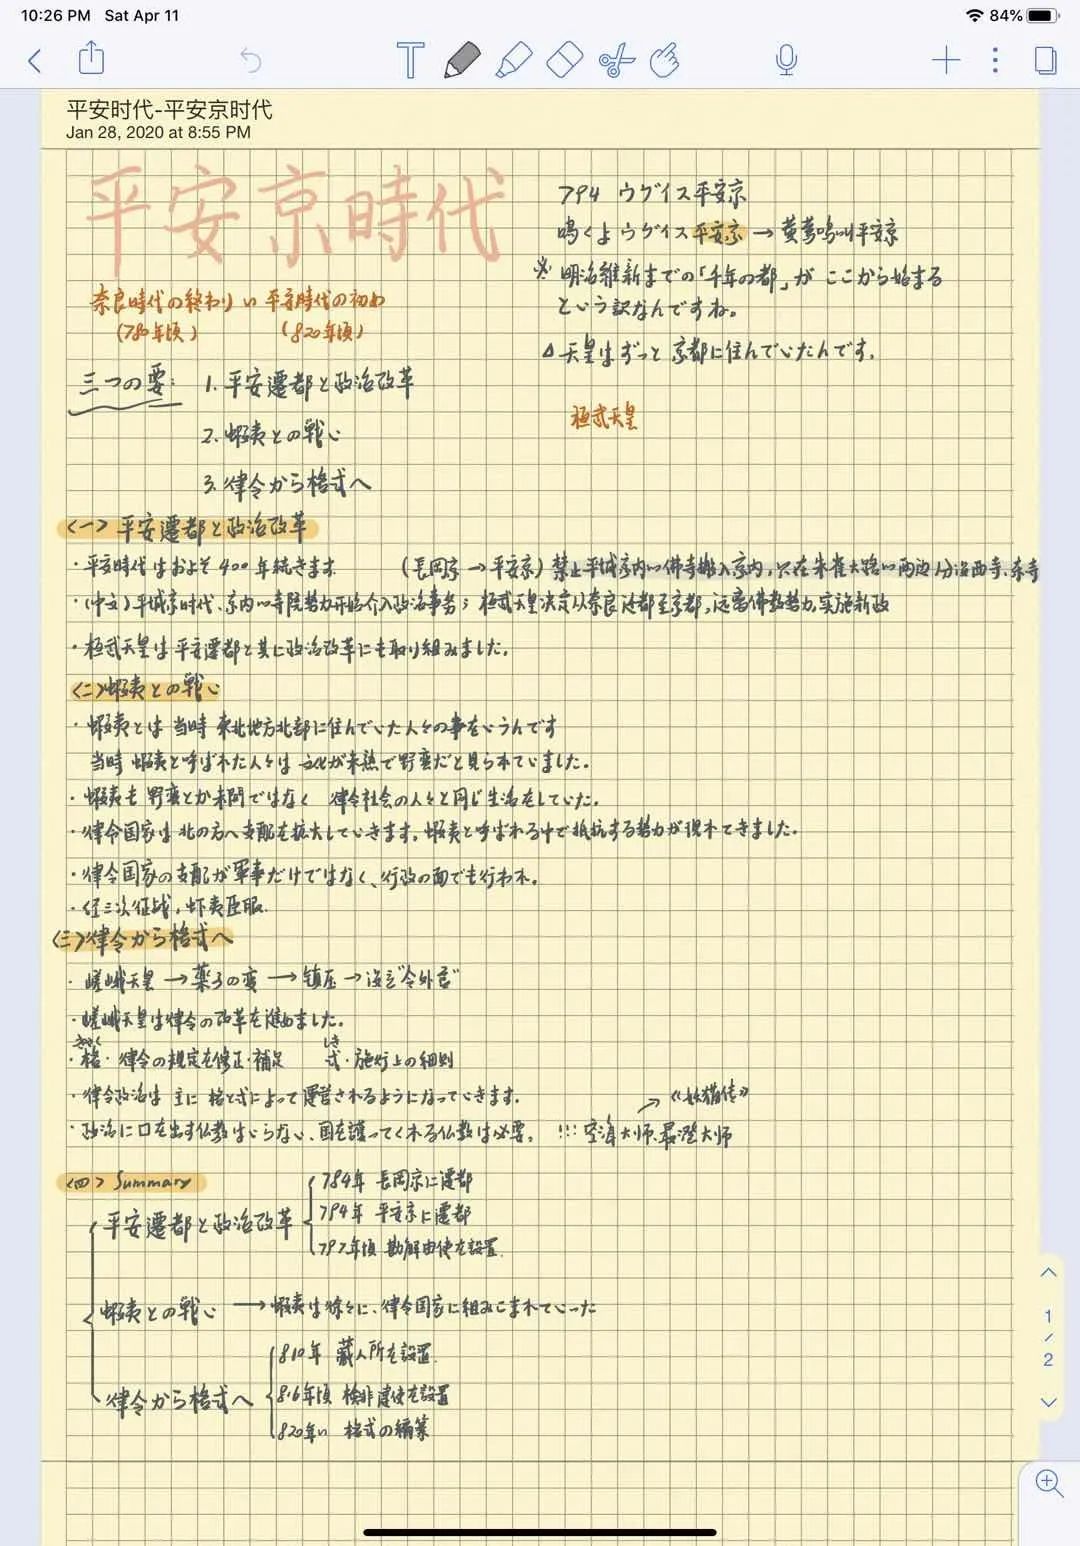 10:26 PM Sat Apr 11
84%
T
平安时代-平安京时代
Jan 28, 2020 at 8:55 PM
平安京時代
奈良時代の終わり い 平安時代の初め
(780年頃) (820年頃)
794 ウグイス平安京
鳴くよ ウグイス平安京 → 黄莺鳴叫平安京
※ 明治維新までの「千年の都」が ここから始まる
という訳なんですね。
△ 天皇はずっと 京都に住んでいたんです。
桓武天皇
三つの要: 1. 平安遷都と政治改革
2. 蝦夷との戦い
3. 律令から格式へ
<一> 平安遷都と政治改革
・平安時代はおよそ400年続きます (長岡京 → 平安京) 禁止平城京内の佛寺搬入京内,只在朱雀大路の両边分设西寺、东寺
・(中文)平城京时代、京内の寺院势力开始介入政治事务; 桓武天皇决定从奈良迁都至京都,远离佛教势力,实施新政
・桓武天皇は平安遷都と共に政治改革にも取り組みました。
<二>蝦夷との戦い
・蝦夷とは 当時 東北地方北部に住んでいた人々の事をいうんです
当時 蝦夷と呼ばれた人々は 文化が未熟で野蛮だと見られていました。
・蝦夷も 野蛮とか未開ではなく 律令社会の人々と同じ生活をしていた。
・律令国家は北の方へ支配を拡大していきます。蝦夷と呼ばれる中で抵抗する勢力が現れてきました.
・律令国家の支配が軍事だけではなく、行政の面でも行われ。
・经三次征战,虾夷臣服.
<三>律令から格式へ
・嵯峨天皇 → 薬子の変 → 镇压 → 设立"令外官"
・嵯峨天皇は律令の改革を進めました。
きゃく しき
・格・律令の規定を修正・補足 式・施行上の細則
・律令政治は 主に 格と式によって運営されるようになっていきます. 《妖猫传》
・政治に口を出す仏教はいらない、国を護ってくれる仏教は必要。 !!! 空海大师、最澄大师
<四> Summary
平安遷都と政治改革
784年 長岡京に遷都
794年 平安京に遷都
797年頃 勘解由使を設置.
蝦夷との戦い → 蝦夷は徐々に、律令国家に組みこまれていった
律令から格式へ
810年 蔵人所を設置.
816年頃 検非違使を設置
820年い 格式の編纂
1
/
2